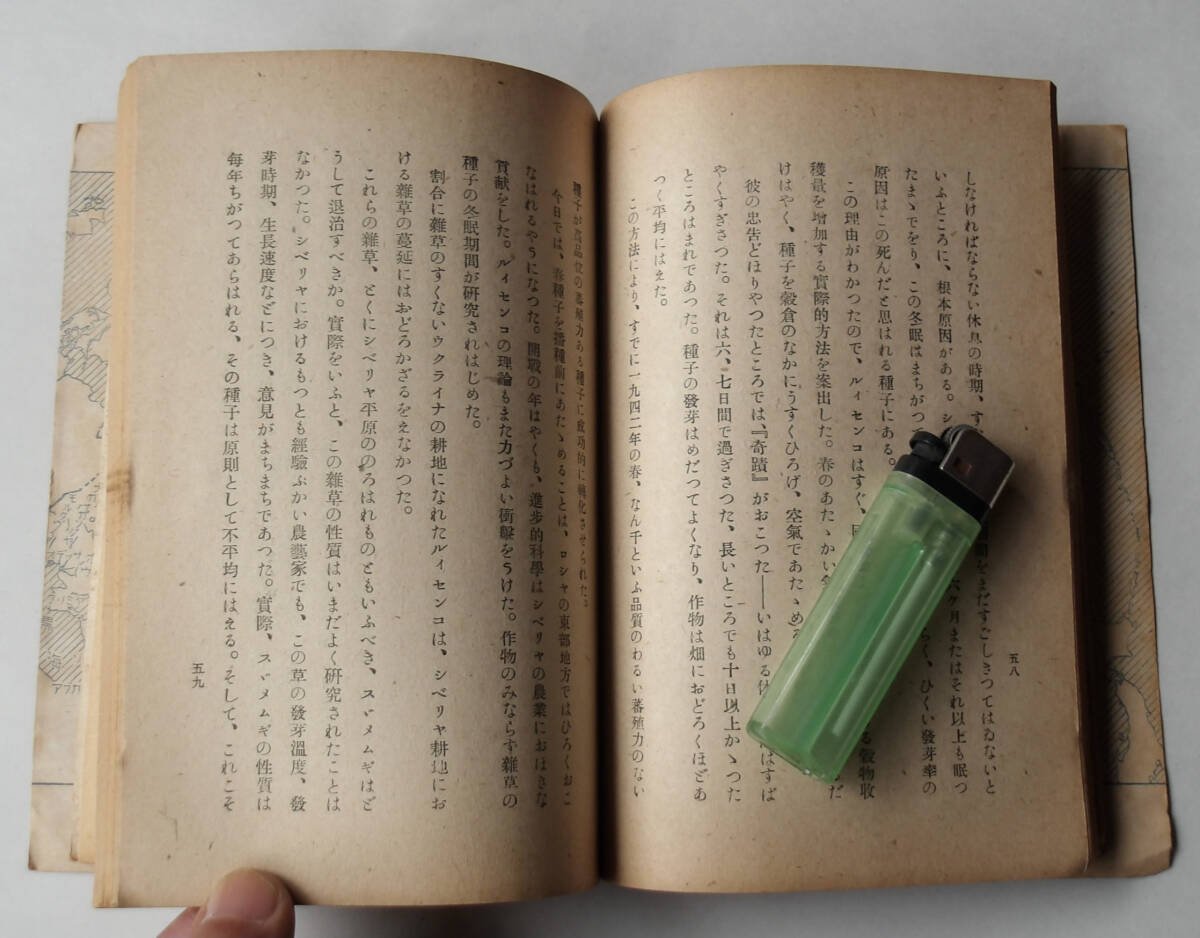 しなければならない休息の時期、す 期間をまだすごしきつてはゐないと
いふところに、根本原因がある。シ 六ケ月またはそれ以上も眠つ
たまゝでをり、この冬眠はまちがつて らく、ひくい發芽率の
原因はこの死んだと思はれる種子にある。
この理由がわかつたので、ルイセンコはすぐ、 る穀物收
穫量を增加する實際的方法を案出した。春のあたゝかい だ
けはやく、種子を穀倉のなかにうすくひろげ、空氣であたゝめる
彼の忠吿どほりやつたところでは、『奇蹟』がおこつた――いはゆる休 はすば
やくすぎさつた。それは六、七日間で過ぎさつた、長いところでも十日以上かゝつた
ところはまれであつた。種子の發芽はめだつてよくなり、作物は畑におどろくほどあ
つく平均にはえた。
この方法により、すでに一九四二年の春、なん千といふ品質のわるい蕃殖力のない
五八
種子が高品位の蕃殖力ある種子に成功的に轉化させられた。
今日では、春種子を播種前にあたゝめることは、ロシヤの東部地方ではひろくおこ
なはれるやうになつた。開戰の年はやくも、進步的科學はシベリヤの農業におほきな
貢献をした。ルイセンコの理論もまた力づよい衝擊をうけた。作物のみならず雜草の
種子の冬眠期間が硏究されはじめた。
割合に雜草のすくないウクライナの耕地になれたルイセンコは、シベリヤ耕地にお
ける雜草の蔓延にはおどろかざるをえなかつた。
これらの雜草、とくにシベリヤ平原ののろはれものともいふべき、スヾメムギはど
うして退治すべきか。實際をいふと、この雜草の性質はいまだよく硏究されたことは
なかつた。シベリヤにおけるもつとも經驗ぶかい農藝家でも、この草の發芽溫度、發
芽時期、生長速度などにつき、意見がまちまちであつた。實際、スヾメムギの性質は
每年ちがつてあらはれる、その種子は原則として不平均にはえる。そして、これこそ
五九